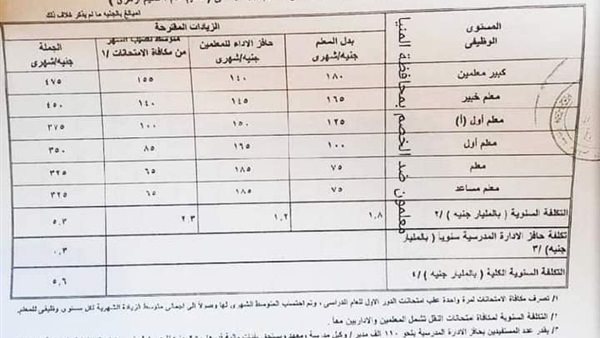 المبالغ بالجنيه ما لم يذكر خلاف ذلك
المستوى الوظيفي
الزيادات المقترحة
بدل المعلم جنيه/شهرى
حافز الاداء للمعلمين جنيه/شهرى
متوسط نصيب الشهر من مكافاة الامتحانات /١
الجملة جنيه/شهرى
كبير معلمين ١٨٠ ١٤٠ ١٥٥ ٤٧٥
معلم خبير ١٦٥ ١٤٥ ١٤٠ ٤٥٠
معلم أول (أ) ١٢٥ ١٥٠ ١٠٠ ٣٧٥
معلم أول ١٠٠ ١٦٥ ٨٥ ٣٥٠
معلم ٧٥ ١٨٥ ٦٥ ٣٢٥
معلم مساعد ٧٥ ١٨٥ ٦٥ ٣٢٥
التكلفة السنوية ( بالمليار جنيه ) /٢ ١.٨ ١.٢ ٢.٣ ٥.٣
تكلفة حافز الادارة المدرسية سنوياً ( بالمليار جنيه) /٣ ٠.٣
التكلفة السنوية الكلية ( بالمليار جنيه ) /٤ ٥.٦
معلمون ضد الخصم بمحافظة المنيا
١/ تصرف مكافاة الامتحانات لمرة واحدة عقب امتحانات الدور الاول للعام الدراسى ، وتم احتساب المتوسط الشهرى لها وصولاً الى اجمالى متوسط الزيادة الشهرية لكل مستوى وظيفى للمعلم.
٢/ التكلفة السنوية لمكافاة امتحانات النقل تشمل المعلمين والاداريين معاً .
٣/ يقدر عدد المستفيدين بحافز الادارة المدرسية بنحو ١١٠ الف مدير / وكيل مدرسة